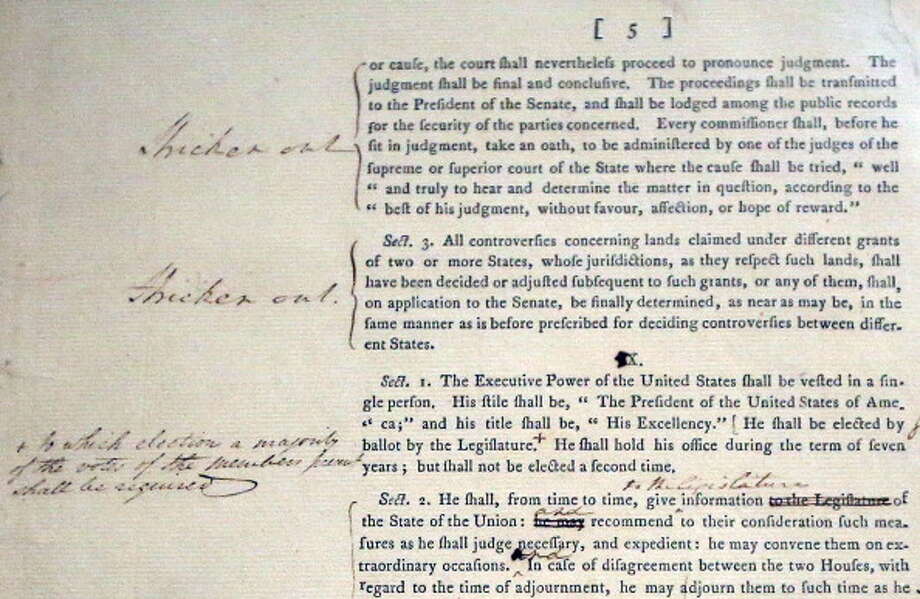 [ 5 ]
or cauſe, the court ſhall nevertheleſs proceed to pronounce judgment. The
judgment ſhall be final and concluſive. The proceedings ſhall be tranſmitted
to the Preſident of the Senate, and ſhall be lodged among the public records
for the ſecurity of the parties concerned. Every commiſſioner ſhall, before he
ſit in judgment, take an oath, to be adminiſtered by one of the judges of the
ſupreme or ſuperior court of the State where the cauſe ſhall be tried, “ well
“ and truly to hear and determine the matter in queſtion, according to the
“ beſt of his judgment, without favour, affection, or hope of reward.”
Stricken out
Sect. 3. All controverſies concerning lands claimed under different grants
of two or more States, whoſe juriſdictions, as they reſpect ſuch lands, ſhall
have been decided or adjuſted ſubſequent to ſuch grants, or any of them, ſhall,
on application to the Senate, be finally determined, as near as may be, in the
ſame manner as is before preſcribed for deciding controverſies between differ-
ent States.
Stricken out.
X.
Sect. 1. The Executive Power of the United States ſhall be veſted in a ſin-
gle perſon. His ſtile ſhall be, “ The Preſident of the United States of Ame-
“ ca;” and his title ſhall be, “ His Excellency.” [ He ſhall be elected by
ballot by the Legiſlature.+ He ſhall hold his office during the term of ſeven
years ; but ſhall not be elected a ſecond time.
+ to which election a majority
of the votes of the members preſent
ſhall be required
to the legiſlature
Sect. 2. He ſhall, from time to time, give information to the Legiſlature of
and
the State of the Union: he may recommend to their conſideration ſuch mea-
ſures as he ſhall judge neceſſary, and expedient: he may convene them on ex-
and
traordinary occaſions. In caſe of diſagreement between the two Houſes, with
regard to the time of adjournment, he may adjourn them to ſuch time as he